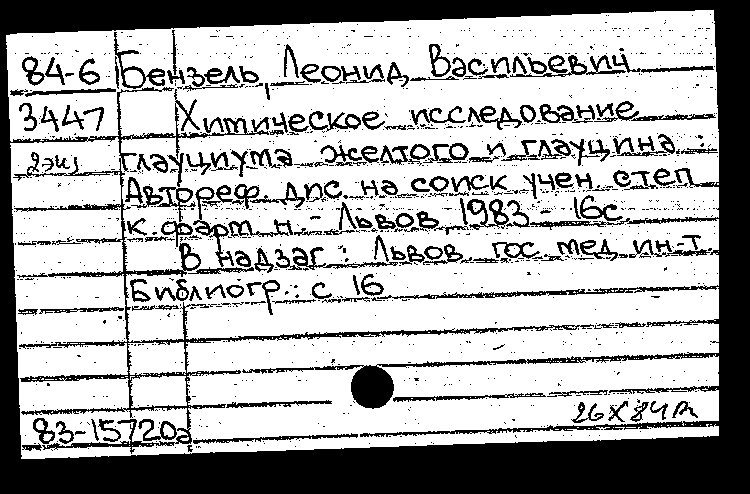 84-6 Бензель, Леонид Васильевич
3447 Химическое исследование
2 экз глауциума желтого и глауцина :
Автореф. дис. на соиск учен степ
к. фарм н. - Львов, 1983 - 16с.
В надзаг : Львов. гос. мед ин-т.
Библиогр.: с 16
26 X 84
83-15720а